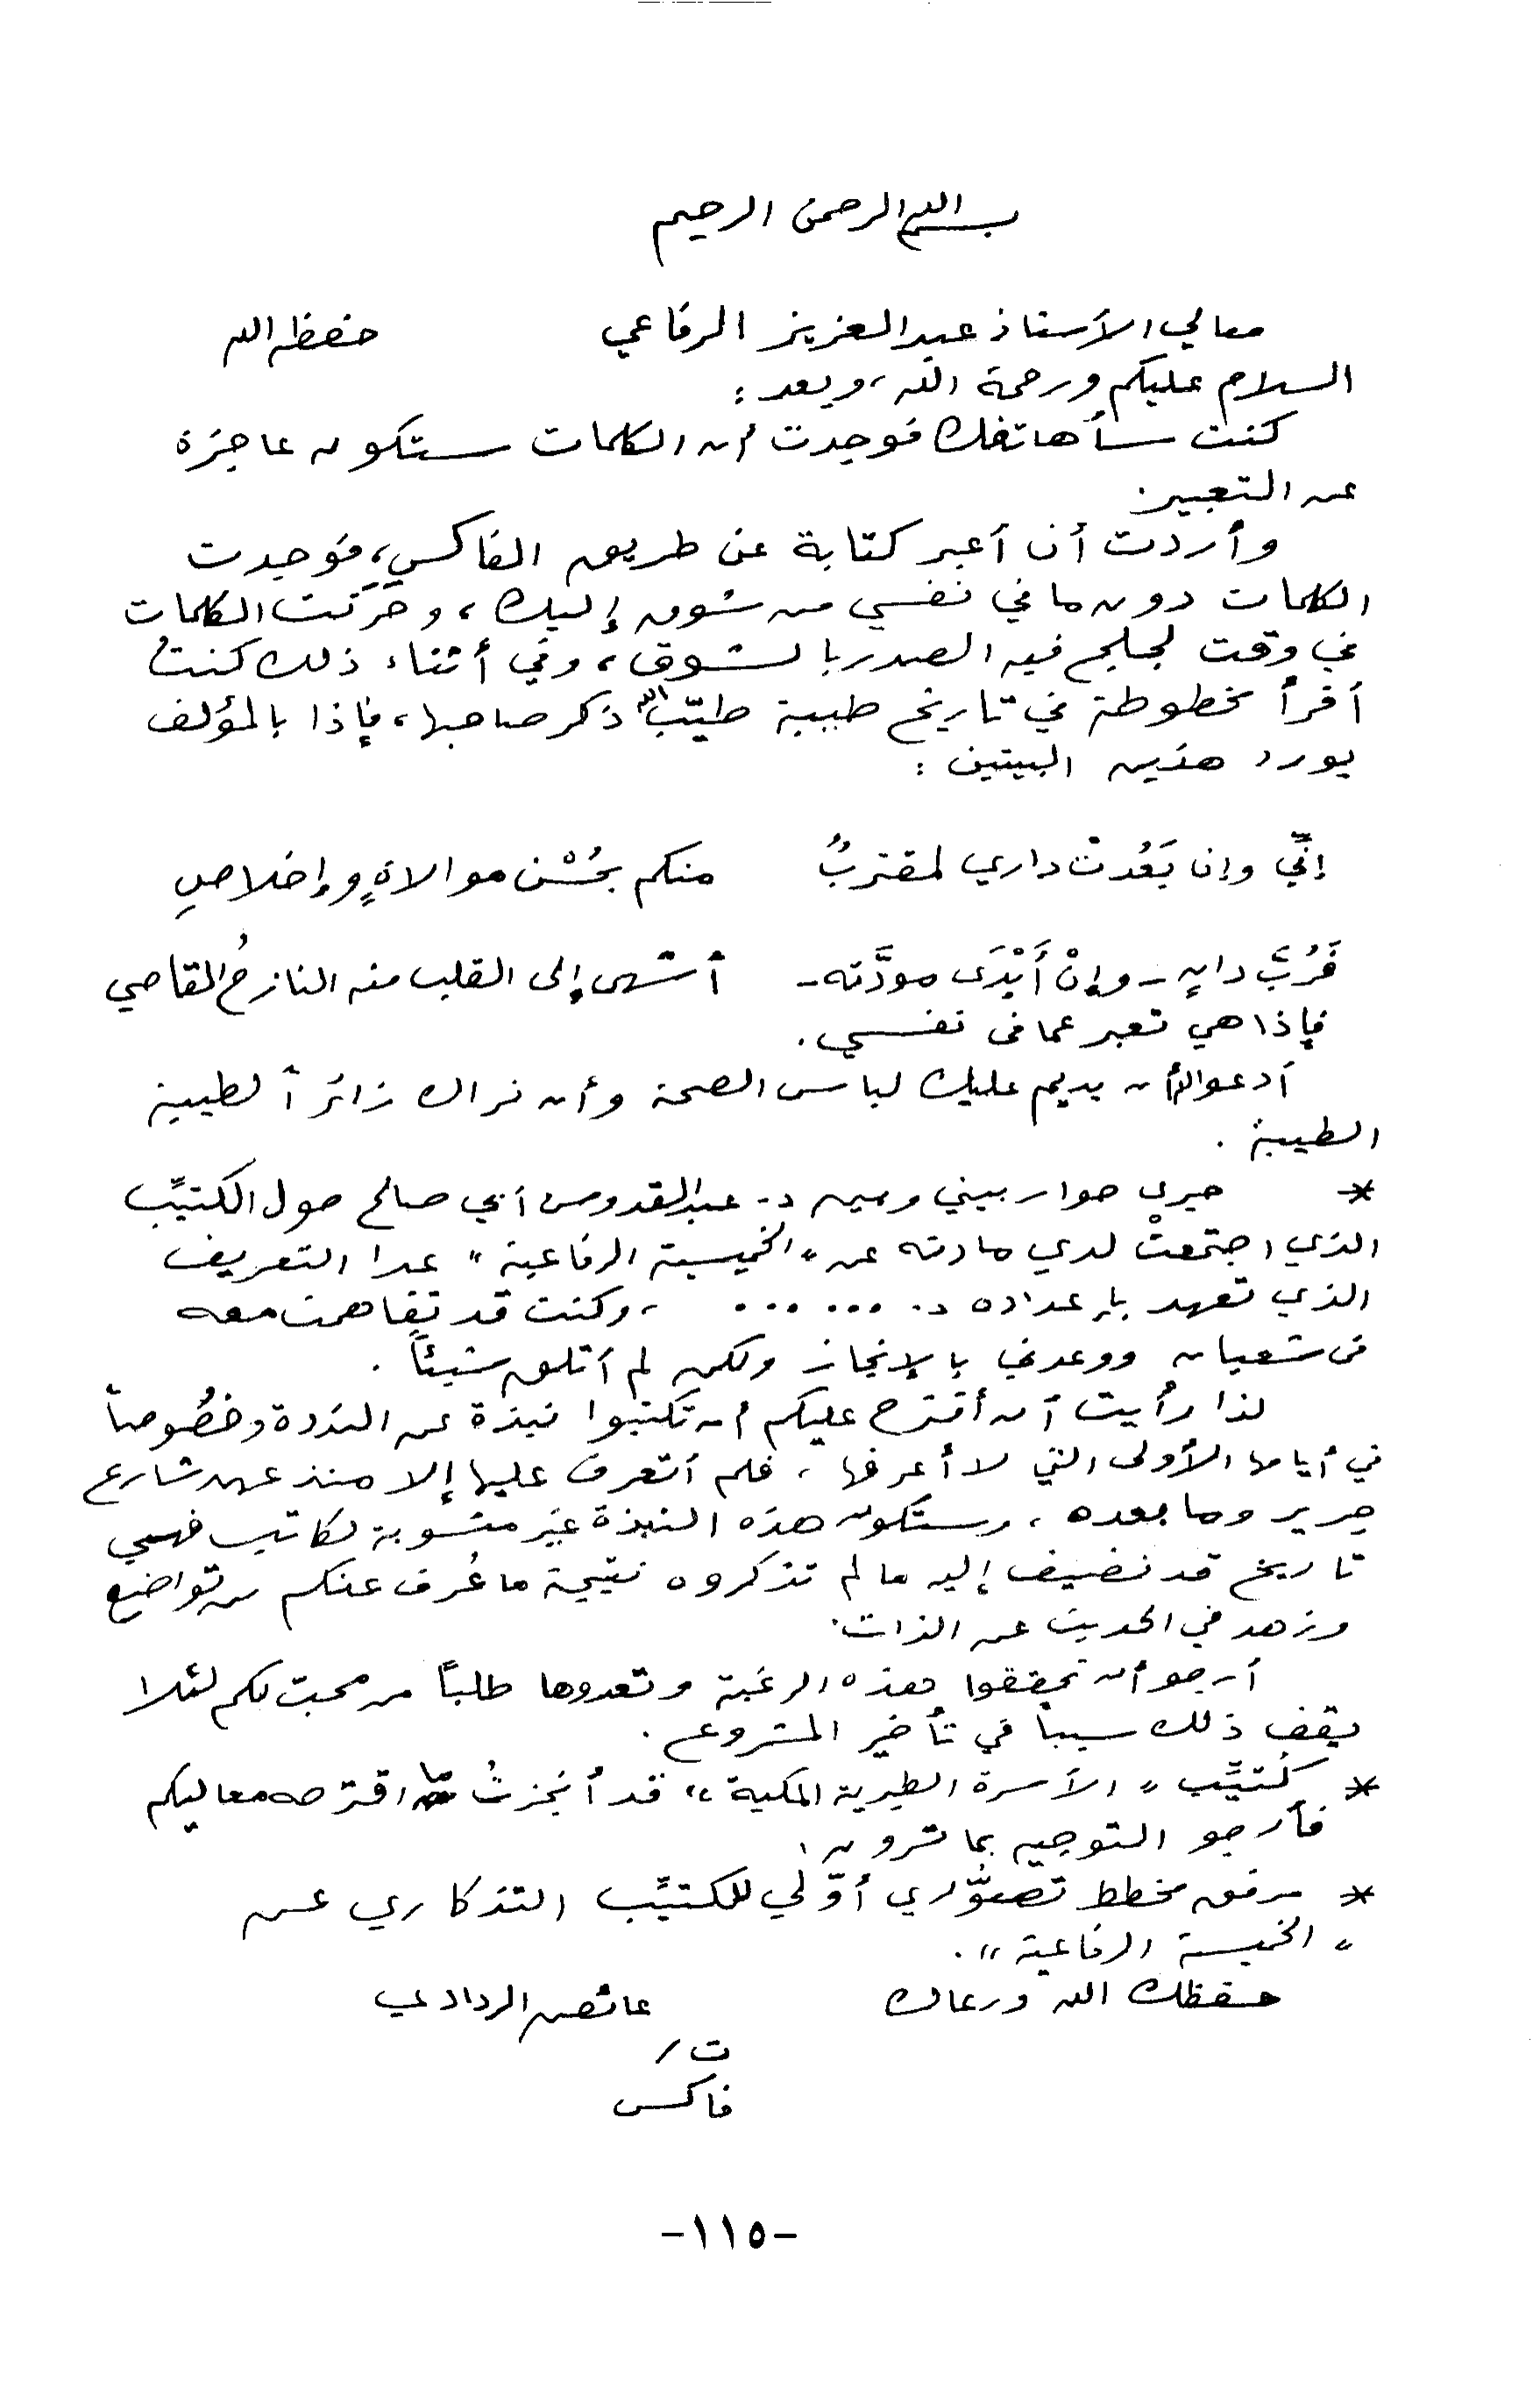 بسم الله الرحمن الرحيم
معالي الأستاذ عبدالعزيز الرفاعي حفظه الله
السلام عليكم ورحمة الله، وبعد:
كنت سأهاتفك فوجدت أن الكلمات ستكون عاجزة
عن التعبير.
وأردت أن أعبر كتابة عن طريق الفاكس، فوجدت
الكلمات دون ما في نفسي من شوق إليك، وحَرَكَت الكلمات
في وقت لجلج فيه الصدر بالشوق، وفي أثناء ذلك كنتُ
أقرأ مخطوطة في تاريخ طيبة طيّب الله ذكر صاحبها، فإذا بالمؤلف
يورد هذين البيتين:
إنّي وإن بَعُدتْ داري لمقتربٌ منكم بحُسْن موالاةٍ وإخلاصِ
فَرُبَّ دانٍ - وإنْ أَبْدَى مودَّته - أشهى إلى القلب منه النازحُ القاصي
فإذا هي تعبر عما في نفسي.
أدعو الله أن يديم عليك لباس الصحة وأن نراك زائراً لطيبة
الطيبة.
* جرى حوار بيني وبين د. عبدالقدوس أبي صالح حول الكتيِّب
الذي اجتمعتْ لدي مادته عن "الخميسية الرفاعية" عدا التعريف
الذي تعهد بإعداده د. ... ... ، وكنت قد تفاهمت معه
في شعبان ووعدني بالإنجاز ولكن لم أتلق شيئاً.
لذا رأيت أن أقترح عليكم أن تكتبوا نبذة عن الندوة وخصُوصاً
في أيامها الأولى التي لا أعرفها، فلم أتعرف عليها إلا منذ عهد شارع
جرير وما بعده، وستكون هذه النبذة غير منسوبة لكاتب فهي
تاريخ قد نضيف إليه ما لم تذكروه نتيجة ما عُرف عنكم من تواضع
وزهد في الحديث عن الذات.
أرجو أن تحققوا هذه الرغبة وتعدوها طلباً من محب لكم لئلا
يقف ذلك سبباً في تأخير المشروع.
* كُتيِّب "الأسرة الطبرية المكية" قد أنجزتُ ما اقترحه معاليكم
فأرجو التوجيه بما ترون.
* مرفق مخطط تصوُّري أوّلي للكتيِّب التذكاري عن
"الخميسية الرفاعية".
حفظك الله ورعاك عائض الردادي
ت/
فاكس
-١١٥-